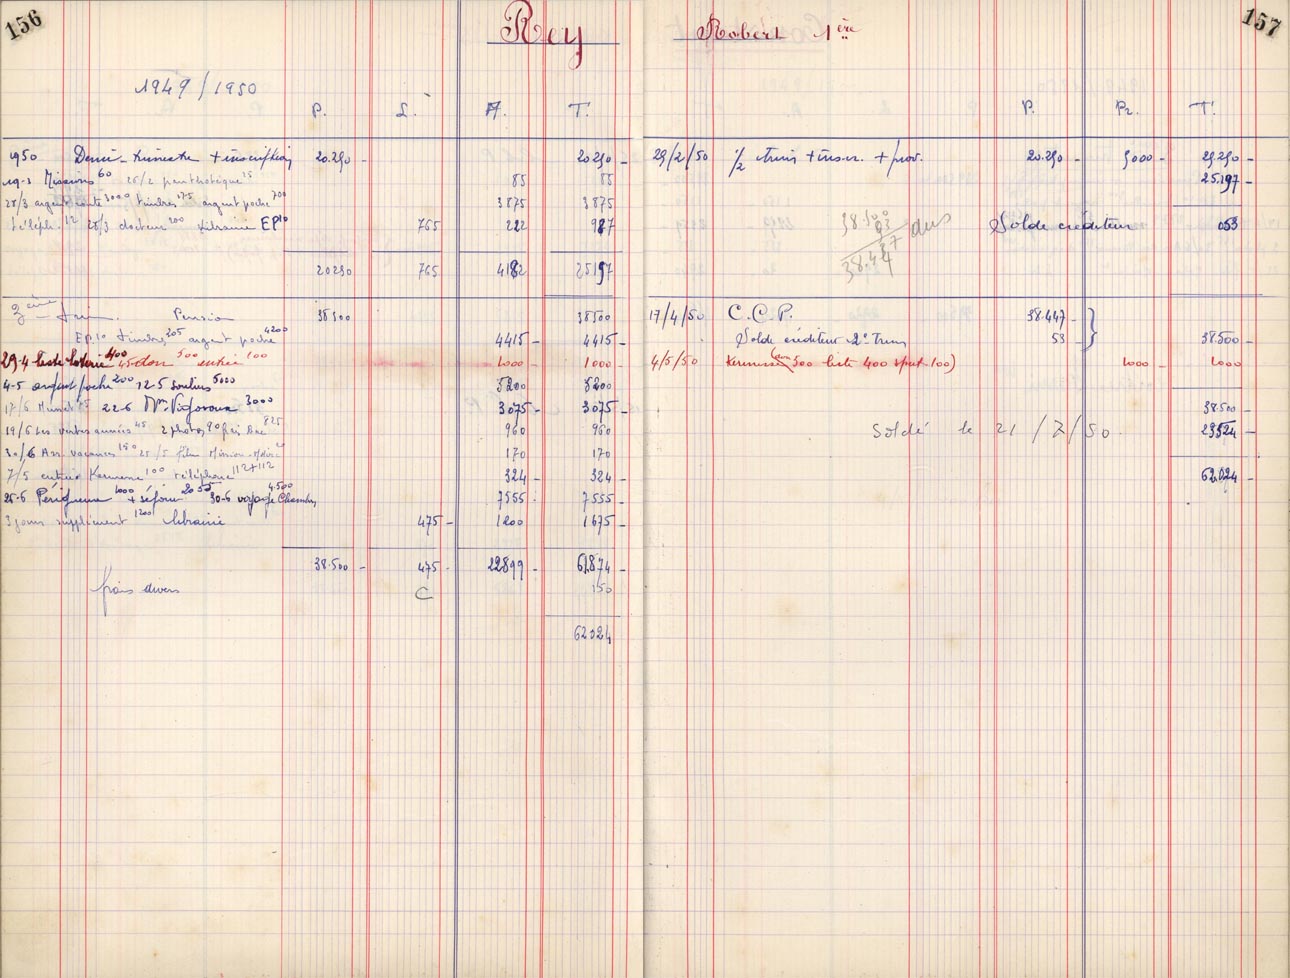 156 Rey
1949/1950
P. L. A. T.
1950 Demi-trimestre + inscription 20.250 - 20250 -
19-3 Missions 60 26/2 panthotèque 25 85 85
28/3 argent 3000 timbres 175 argent poche 700 3875 3875
téléph. 12 28/3 docteur 200 Librairie EP 10 765 222 987
20250 765 4182 25197
3ème trim. Pension 38500 38500
EP. 10 timbres 205 argent poche 4200 4415 - 4415 -
29-4 liste loterie 400 don 500 entrée 100 1000 - 1000 -
4-5 argent poche 200 12-5 souliers 5000 5200 5200
17/6 22-6 Mr Vigoroux 3000 3075 - 3075 -
19/6 Les vertes années 45 2 photos 90 825 960 960
30/6 vacances 150 25/5 film Mission 20 170 170
7/5 entrée Kermesse 100 téléphone 112+112 324 - 324 -
25-6 Périgueux 1000 + séjour 2055 30-6 voyage Chambéry 4.500 7555 - 7555 -
3 jours supplément 1200 librairie 475 - 1200 1675 -
38.500 - 475 - 22899 - 61.874 -
frais divers C 150
62024
Robert 1ère 157
P. Pr. T.
29/2/50 1/2 trim + inscr. + prov. 20.250 - 5000 - 25.250 -
25.197 -
38.500
53
38.447
dus
Solde créditeur 053
17/4/50 C.C.P. 38.447 -
Solde créditeur 2° trim 53 - 38.500 -
4/5/50 Kermesse (don 500 liste 400 sport - 100) 1000 - 1000
38.500 -
Soldé le 21/7/50. 23524 -
62.024 -